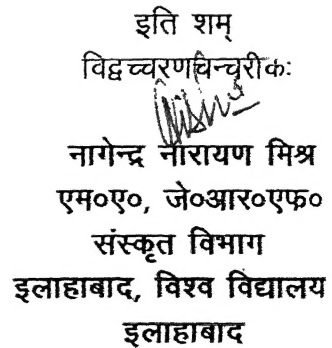 इति शम्
विद्वच्चरणचिन्चुरीकः
नागेन्द्र नारायण मिश्र
एम०ए०, जे०आर०एफ०
संस्कृत विभाग
इलाहाबाद, विश्व विद्यालय
इलाहाबाद